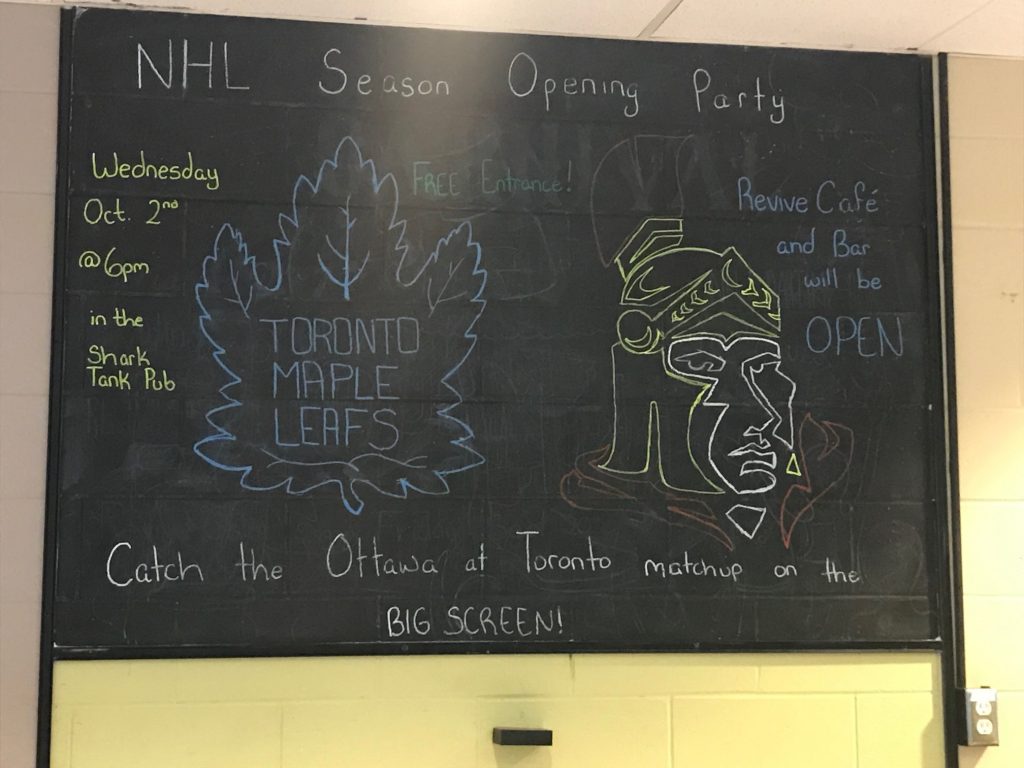 NHL Season Opening Party
Wednesday
Oct. 2nd
@ 6pm
in the
Shark
Tank Pub
FREE Entrance!
TORONTO
MAPLE
LEAFS
Revive Café
and Bar
will be
OPEN
Catch the Ottawa at Toronto matchup on the
BIG SCREEN!